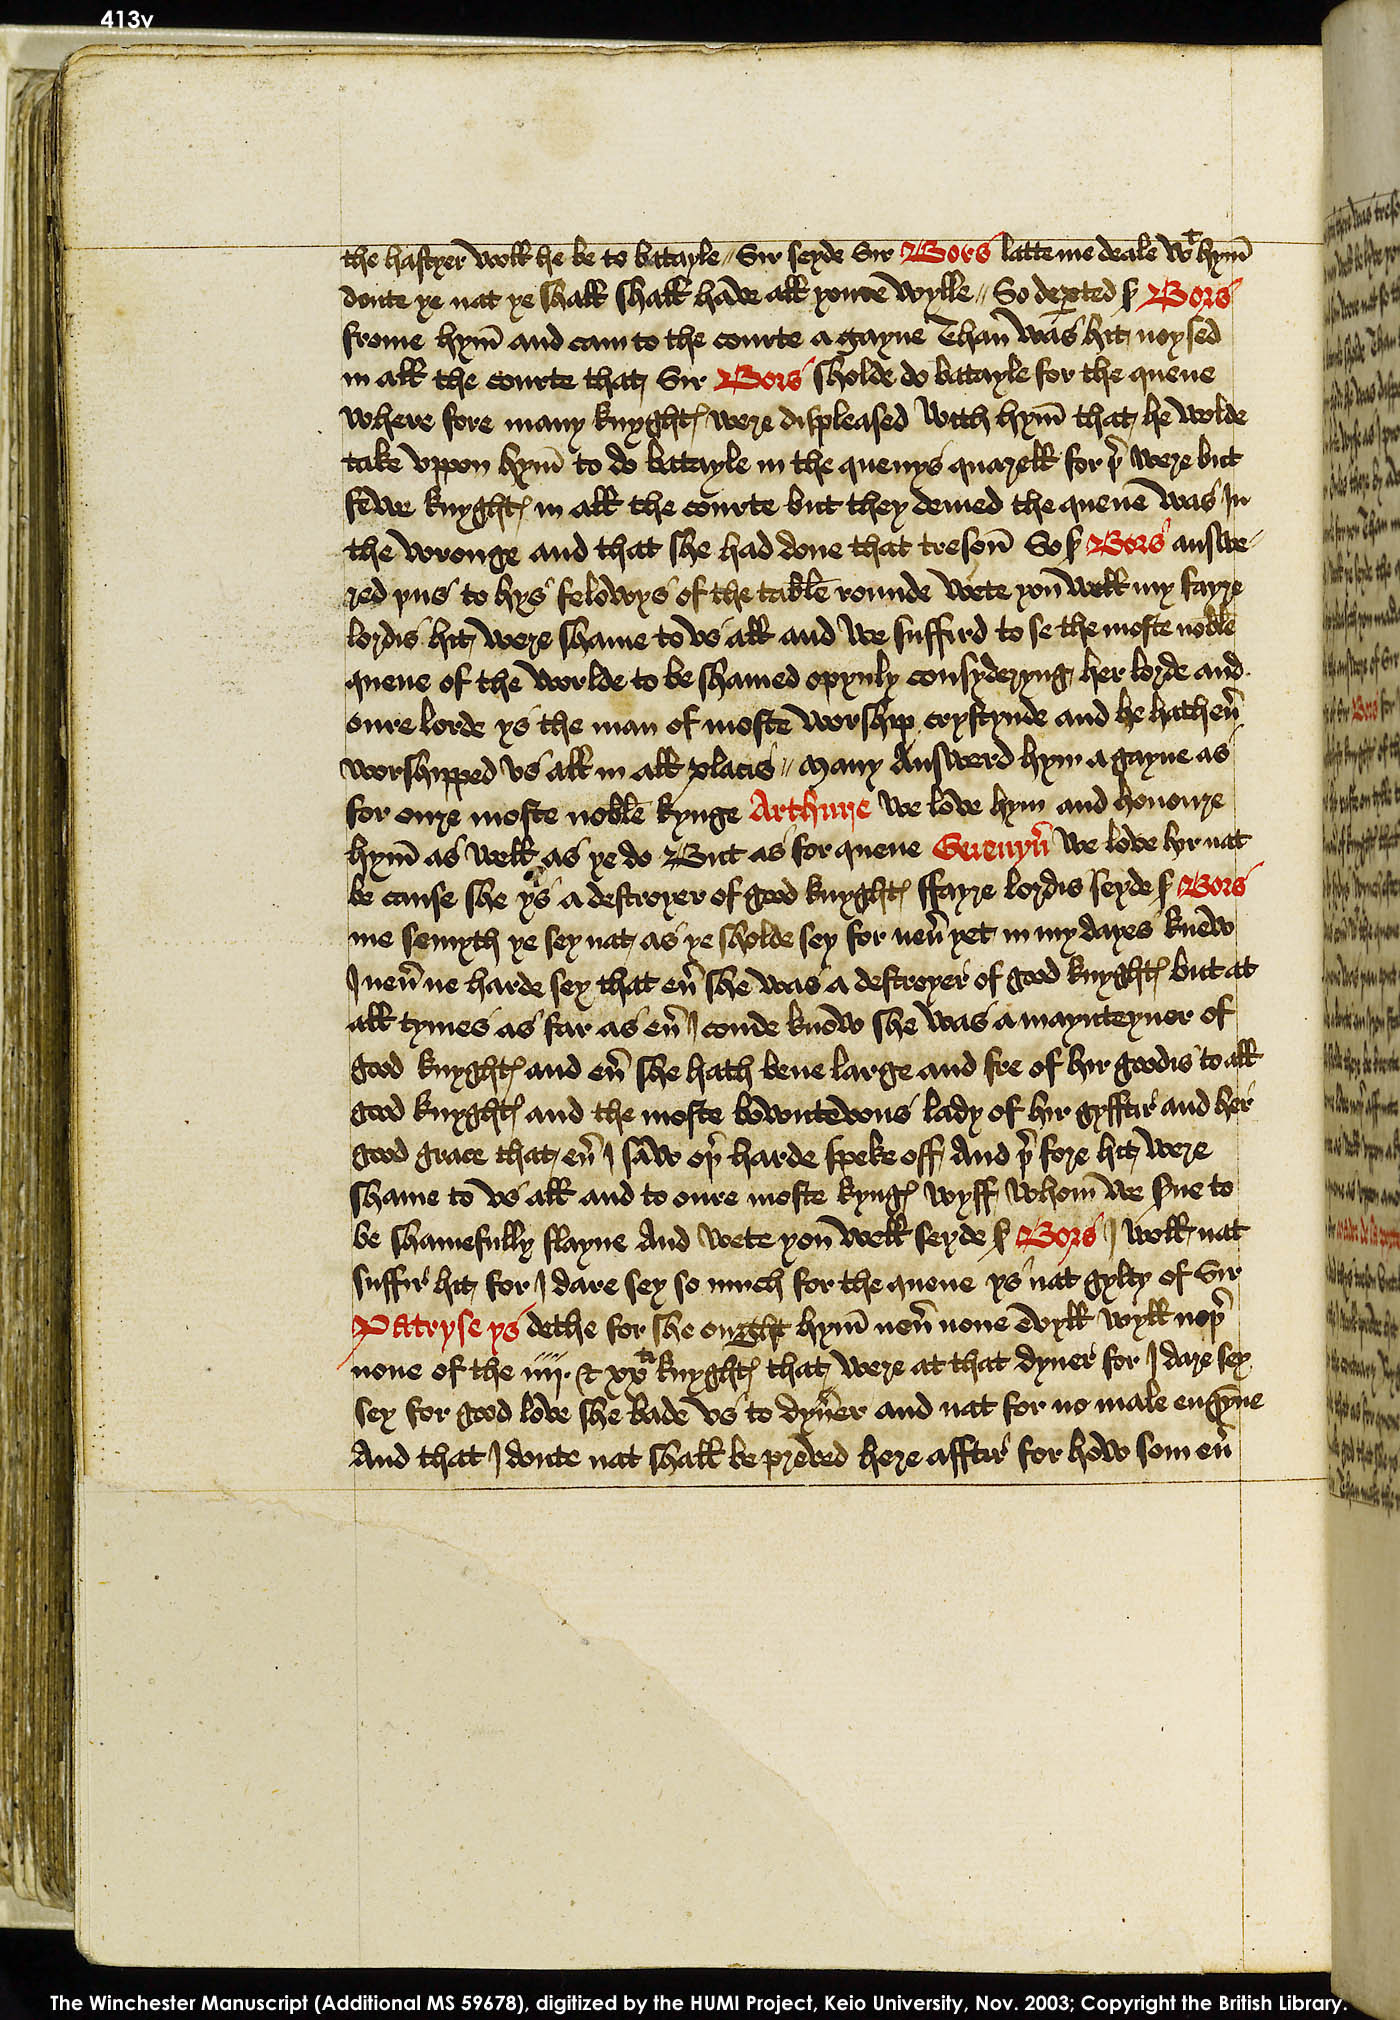 413v
the hastyer woll he be to batayle // Sir seyde Sir Bors latte me deale wt hym̄
doute ye nat ye shall shall haue all youre wylle // So dep̱ted ẜ Bors
frome hym̄ and cam to the courte a gayne Than̄ was hit noysed
in all the courte that Sir Bors sholde do batayle for the quene
where fore many knyghtꝭ were displeased with hym̄ that he wolde
take vppon hym̄ to do batayle in the quenys quarell for þ̉ were but
fewe knyghtꝭ in all the courte but they demed the quene was In
the wronge and that she had done that treson̄ So ẜ Bors answe-
red þus to hys felowys of the table rounde wete you well my fayre
lordis hit were shame to vs all and we suffird to se the moste noble
quene of the worlde to be shamed opynly consyderyng her lorde and
oure lorde ys the man of moste worship crystynde and he hath eũ
worshipped vs all in all placis // Many Answerd hym a gayne as
for oure moste noble kynge Arthure we love hym and honoure
hym̄ as well as ye do But as for quene Gwenyũ we love hir nat
be cause she ys a destroyer of good knyghtꝭ ffayre lordis seyde ẜ Bors
me semyth ye sey nat as ye sholde sey for neũ yet in my dayes knew
I neũ ne harde sey that eũ she was a destroyer of good knyghtꝭ but at
all tymes as far as eũ I coude know she was a maynteyner of
good knyghtꝭ and eũ she hath bene large and fre of hir goodis to all
good knyghtꝭ and the moste bownteuous lady of hir gyfftis and her
good grace that eũ I saw oþ̉ harde speke off And þ̉ fore hit were
shame to vs all and to oure moste kyngꝭ wyff whom̄ we sue to
be shamefully slayne And wete you well seyde ẜ Bors I woll nat
suffir hit for I dare sey so much for the quene ys nat gylty of Sir
Patryse ys dethe for she ought hym̄ neũ none evyll wyll noþ̉
none of the iiij. & xxti knyghtꝭ that were at that dyner for I dare sey
sey for good love she bade vs to dyn̄er and nat for no male engyne
And that I doute nat shall be preved here afftir for how som eũ
The Winchester Manuscript (Additional MS 59678), digitized by the HUMI Project, Keio University, Nov. 2003; Copyright the British Library.